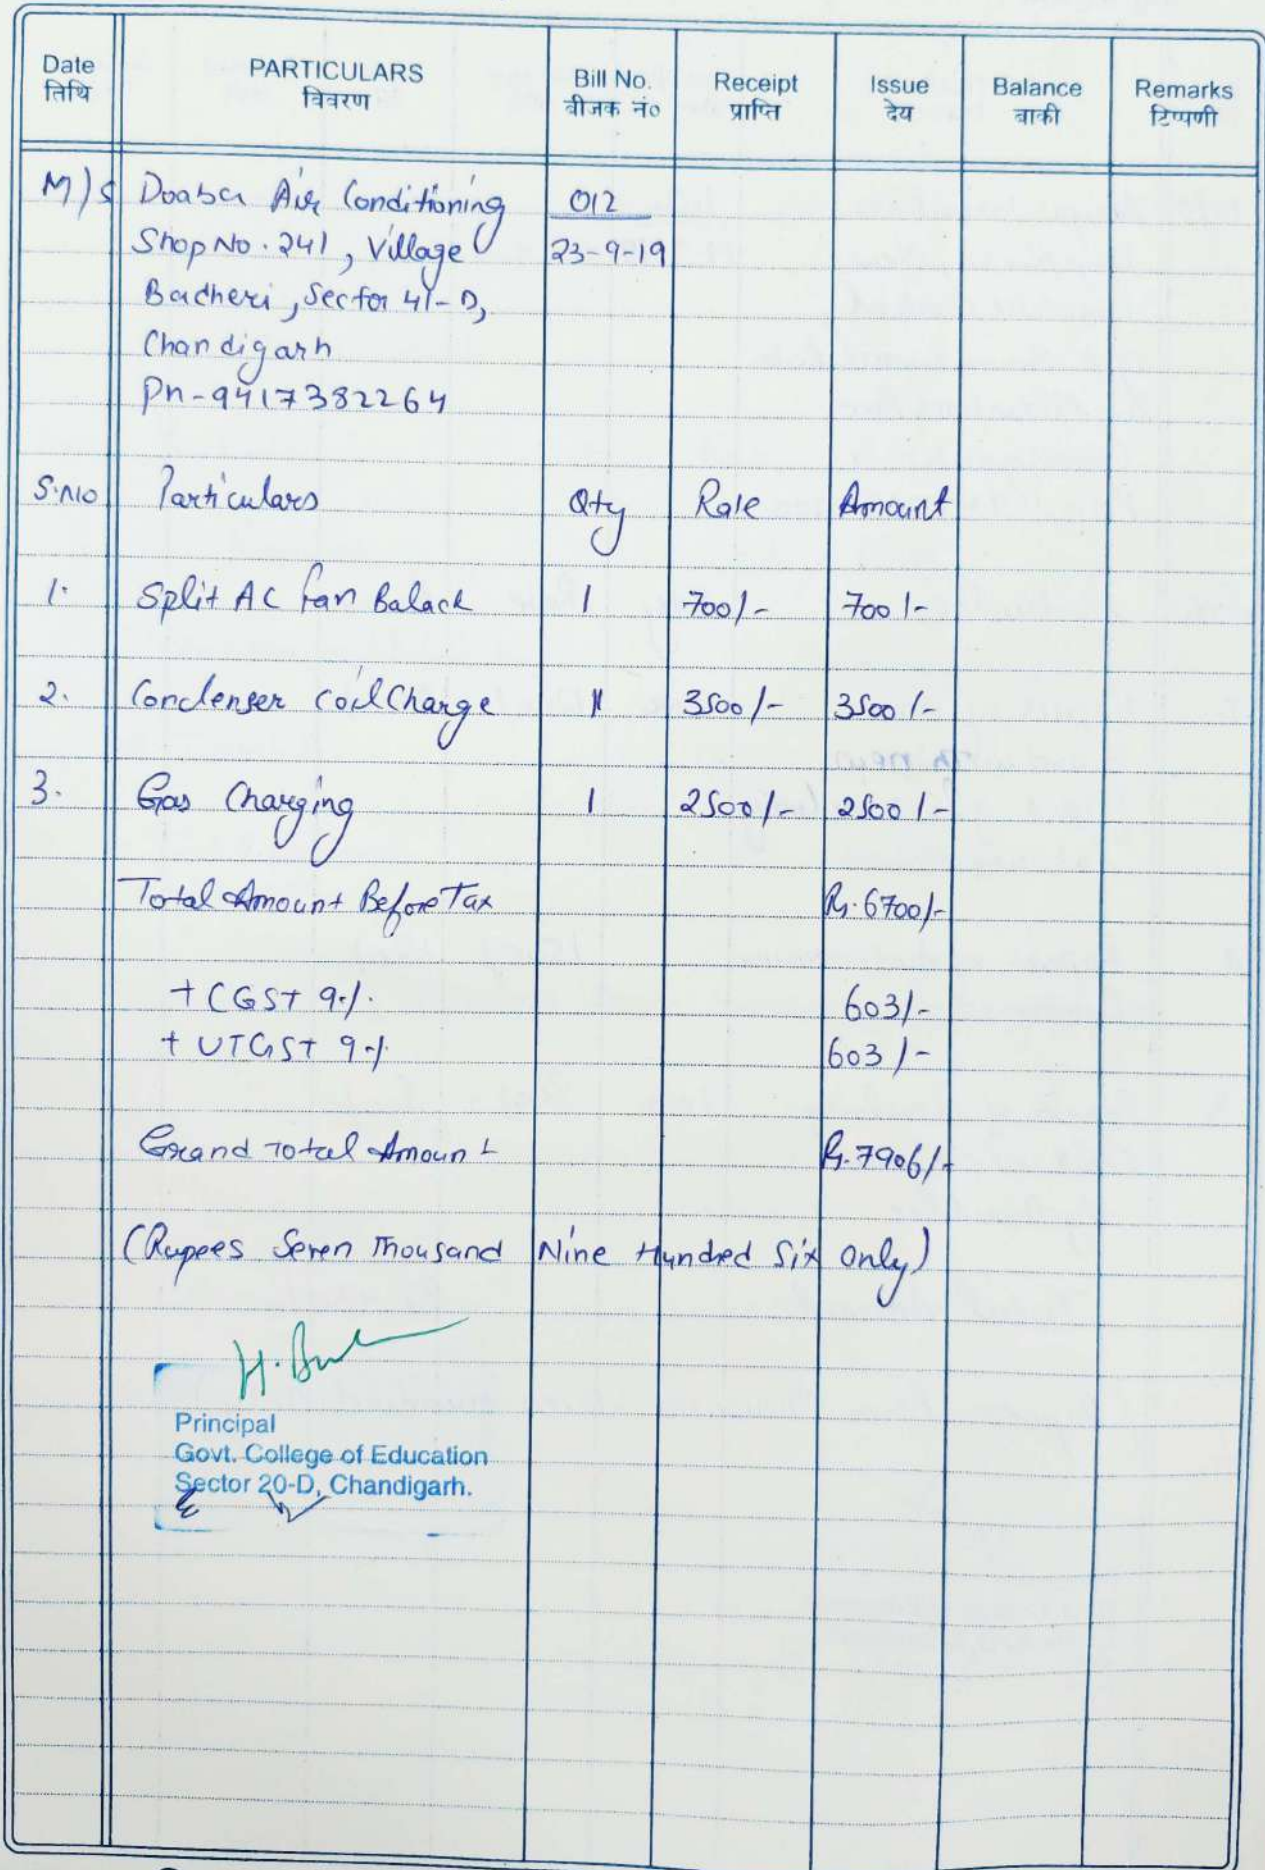 Date PARTICULARS Bill No. Receipt Issue Balance Remarks
तिथि विवरण बीजक नं० प्राप्ति देय बाकी टिप्पणी
M/s Doaba Air Conditioning 012
Shop No. 241, Village 23-9-19
Badheri, Sector 41-D,
Chandigarh
Ph-9417382264
S.No Particulars Qty Rate Amount
1. Split AC fan Balack 1 700/- 700/-
2. Condenser Coil Charge 1 3500/- 3500/-
3. Gas Charging 1 2500/- 2500/-
Total Amount Before Tax Rs. 6700/-
+ CGST 9% 603/-
+ UTGST 9% 603/-
Grand Total Amount Rs. 7906/-
(Rupees Seven Thousand Nine Hundred Six only)
Principal
Govt. College of Education
Sector 20-D, Chandigarh.